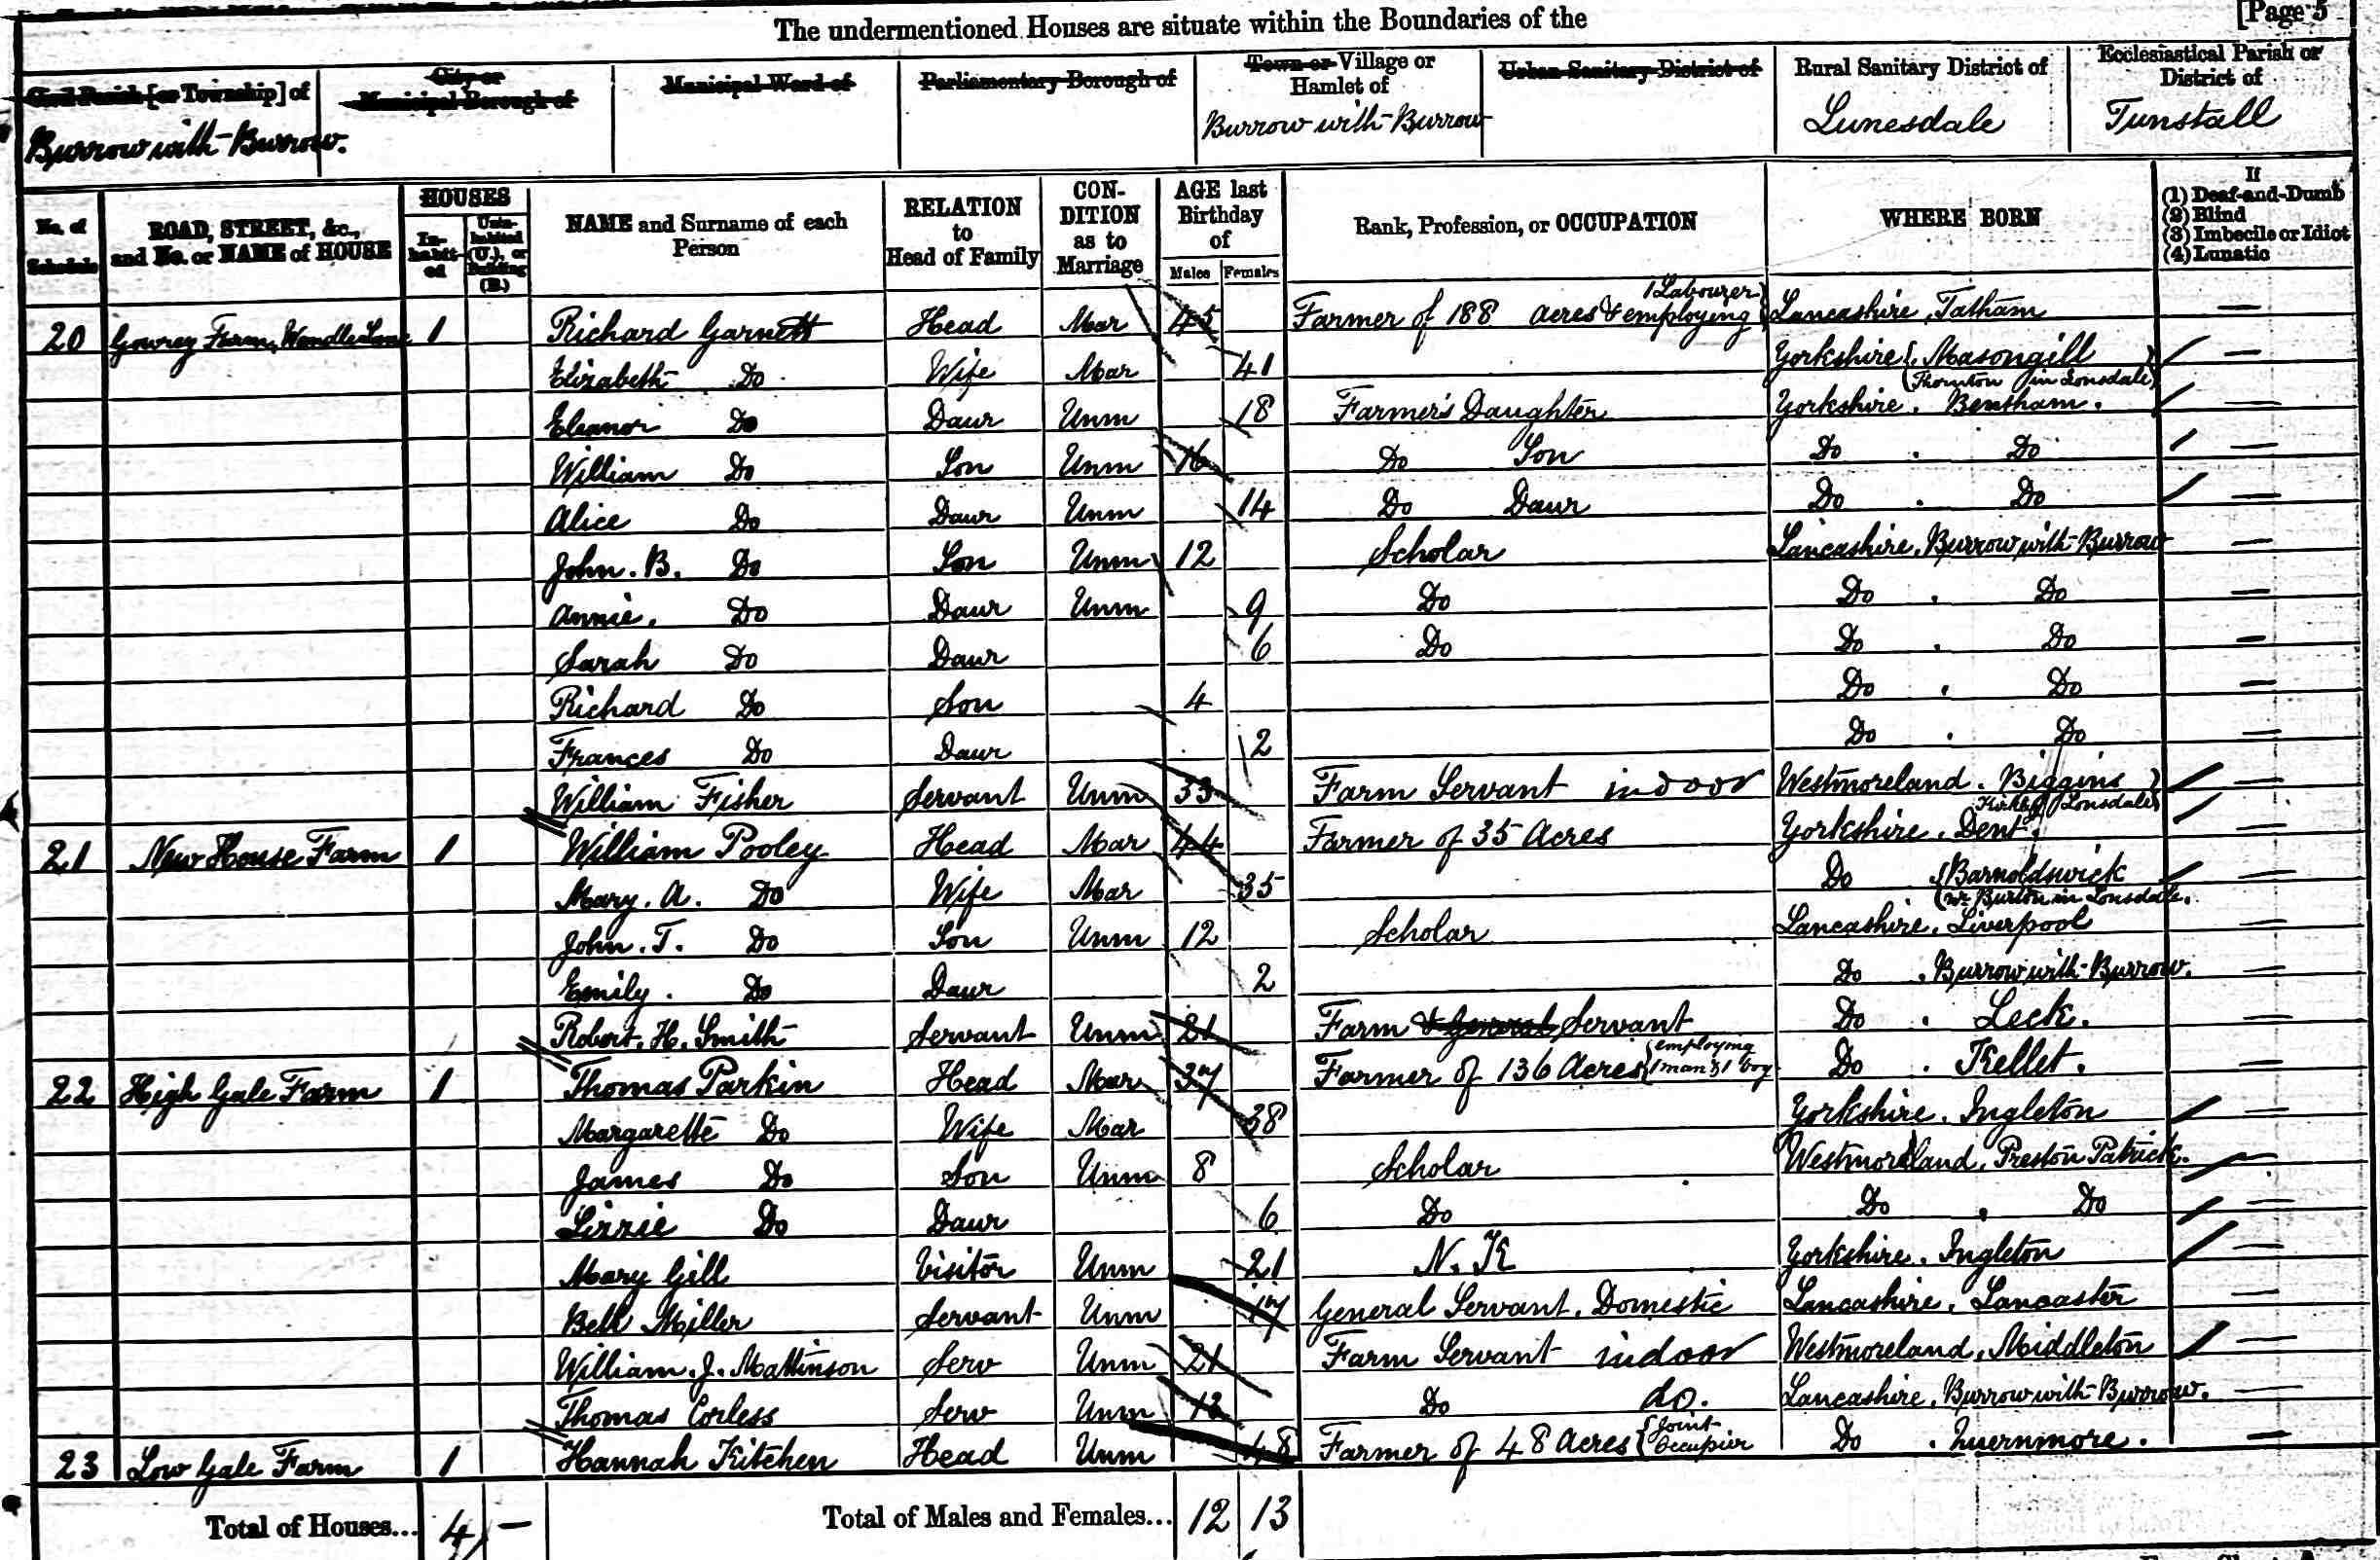 The undermentioned Houses are situate within the Boundaries of the
[Page 5
Civil Parish [or Township] of
City or Municipal Borough of
Municipal Ward of
Parliamentary Borough of
Town or Village or Hamlet of
Urban Sanitary District of
Rural Sanitary District of
Ecclesiastical Parish or District of
Burrow with Burrow.
Burrow with Burrow
Lunesdale
Tunstall
No. of Schedule
ROAD, STREET, &c., and No. or NAME of HOUSE
HOUSES
Inhabited
Uninhabited (U.), or Building (B.)
NAME and Surname of each Person
RELATION to Head of Family
CONDITION as to Marriage
AGE last Birthday of
Males
Females
Rank, Profession, or OCCUPATION
WHERE BORN
If
(1) Deaf-and-Dumb
(2) Blind
(3) Imbecile or Idiot
(4) Lunatic
20 Gowrey Farm, Wandle Lane 1 Richard Garnett Head Mar 45 Farmer of 188 acres & employing 1 Labourer Lancashire, Tatham —
Elizabeth Do Wife Mar 41 Yorkshire, Masongill (Thornton in Lonsdale) —
Eleanor Do Daur Unm 18 Farmer's Daughter Yorkshire. Bentham. —
William Do Son Unm 16 Do Son Do . Do —
Alice Do Daur Unm 14 Do Daur Do . Do —
John. B. Do Son Unm 12 Scholar Lancashire, Burrow with Burrow —
Annie. Do Daur Unm 9 Do Do . Do —
Sarah Do Daur 6 Do Do . Do —
Richard Do Son 4 Do . Do —
Frances Do Daur 2 Do . Do —
William Fisher Servant Unm 33 Farm Servant indoor Westmoreland. Biggins Kirkby Lonsdale —
21 New House Farm 1 William Pooley Head Mar 44 Farmer of 35 Acres Yorkshire. Dent. —
Mary. A. Do Wife Mar 35 Do . Barnoldswick (nr Burton in Lonsdale. —
John. T. Do Son Unm 12 Scholar Lancashire, Liverpool —
Emily. Do Daur 2 Do . Burrow with Burrow. —
Robert. H. Smith Servant Unm 21 Farm & General Servant Do . Leck. —
22 High Gale Farm 1 Thomas Parkin Head Mar 37 Farmer of 136 Acres {employing 1 man & 1 boy Do . Kellet. —
Margarette Do Wife Mar 38 Yorkshire. Ingleton —
James Do Son Unm 8 Scholar Westmoreland, Preston Patrick. —
Lizzie Do Daur 6 Do Do . Do —
Mary Gill Visitor Unm 21 N. K Yorkshire. Ingleton —
Bell Miller Servant Unm 17 General Servant. Domestic Lancashire. Lancaster —
William. J. Mattinson Serv Unm 21 Farm Servant indoor Westmoreland, Middleton —
Thomas Corless Serv Unm Do do. Lancashire, Burrow with Burrow. —
23 Low Gale Farm 1 Hannah Kitchen Head Unm 48 Farmer of 48 Acres {Joint Occupier Do . Quernmore. —
Total of Houses... 4 —
Total of Males and Females... 12 13